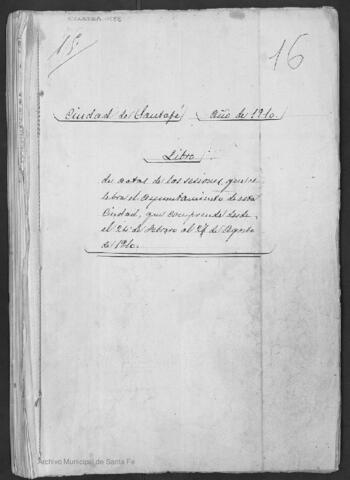 15.
16
Ciudad de Santafé Año de 1910.
Libro
de actas de las sesiones que ce
lebra el Ayuntamiento de esta
Ciudad, que comprende desde
el 24 de febrero al 24 de Agosto
de 1910.
Archivo Municipal de Santa Fe